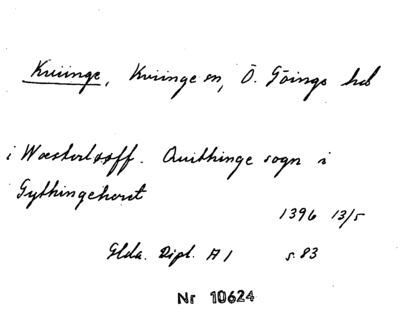 Kviinge, Kviinge sn, Ö. Göinge hd
i Wæstertoff. Quithinge sogn i
Gythingehoret
1396 13/5
Glda. Dipl. A 1 s. 83
Nr 10624